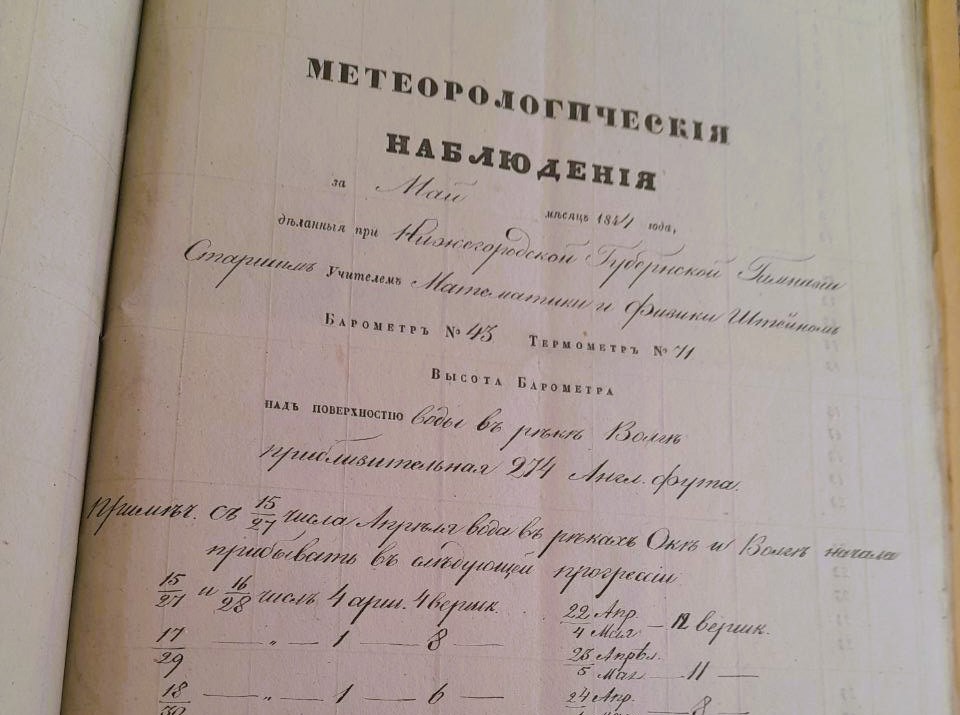 МЕТЕОРОЛОГИЧЕСКІЯ
НАБЛЮДЕНІЯ
за Май мѣсяцъ 1844 года,
дѣланныя при Нижегородской Губернской Гимназіи
Старшимъ Учителемъ Математики и Физики Штейномъ
БАРОМЕТРЪ № 43 ТЕРМОМЕТРЪ № 71
ВЫСОТА БАРОМЕТРА
НАДЪ ПОВЕРХНОСТІЮ воды въ рѣкѣ Волгѣ
приблизительная 274 Англ. фута.
Примѣч. Съ 15/27 числа Апрѣля вода въ рѣкахъ Окѣ и Волгѣ начала
прибывать въ слѣдующей прогрессіи
15/27 и 16/28 числъ 4 арш. 4 вершк.
17/29 — „ — 1 — 8 —
18/30 — „ — 1 — 6 —
22 Апр./4 Мая — 12 вершк.
23 Апрѣл./5 Мая — 11 —
24 Апр. — 8 —